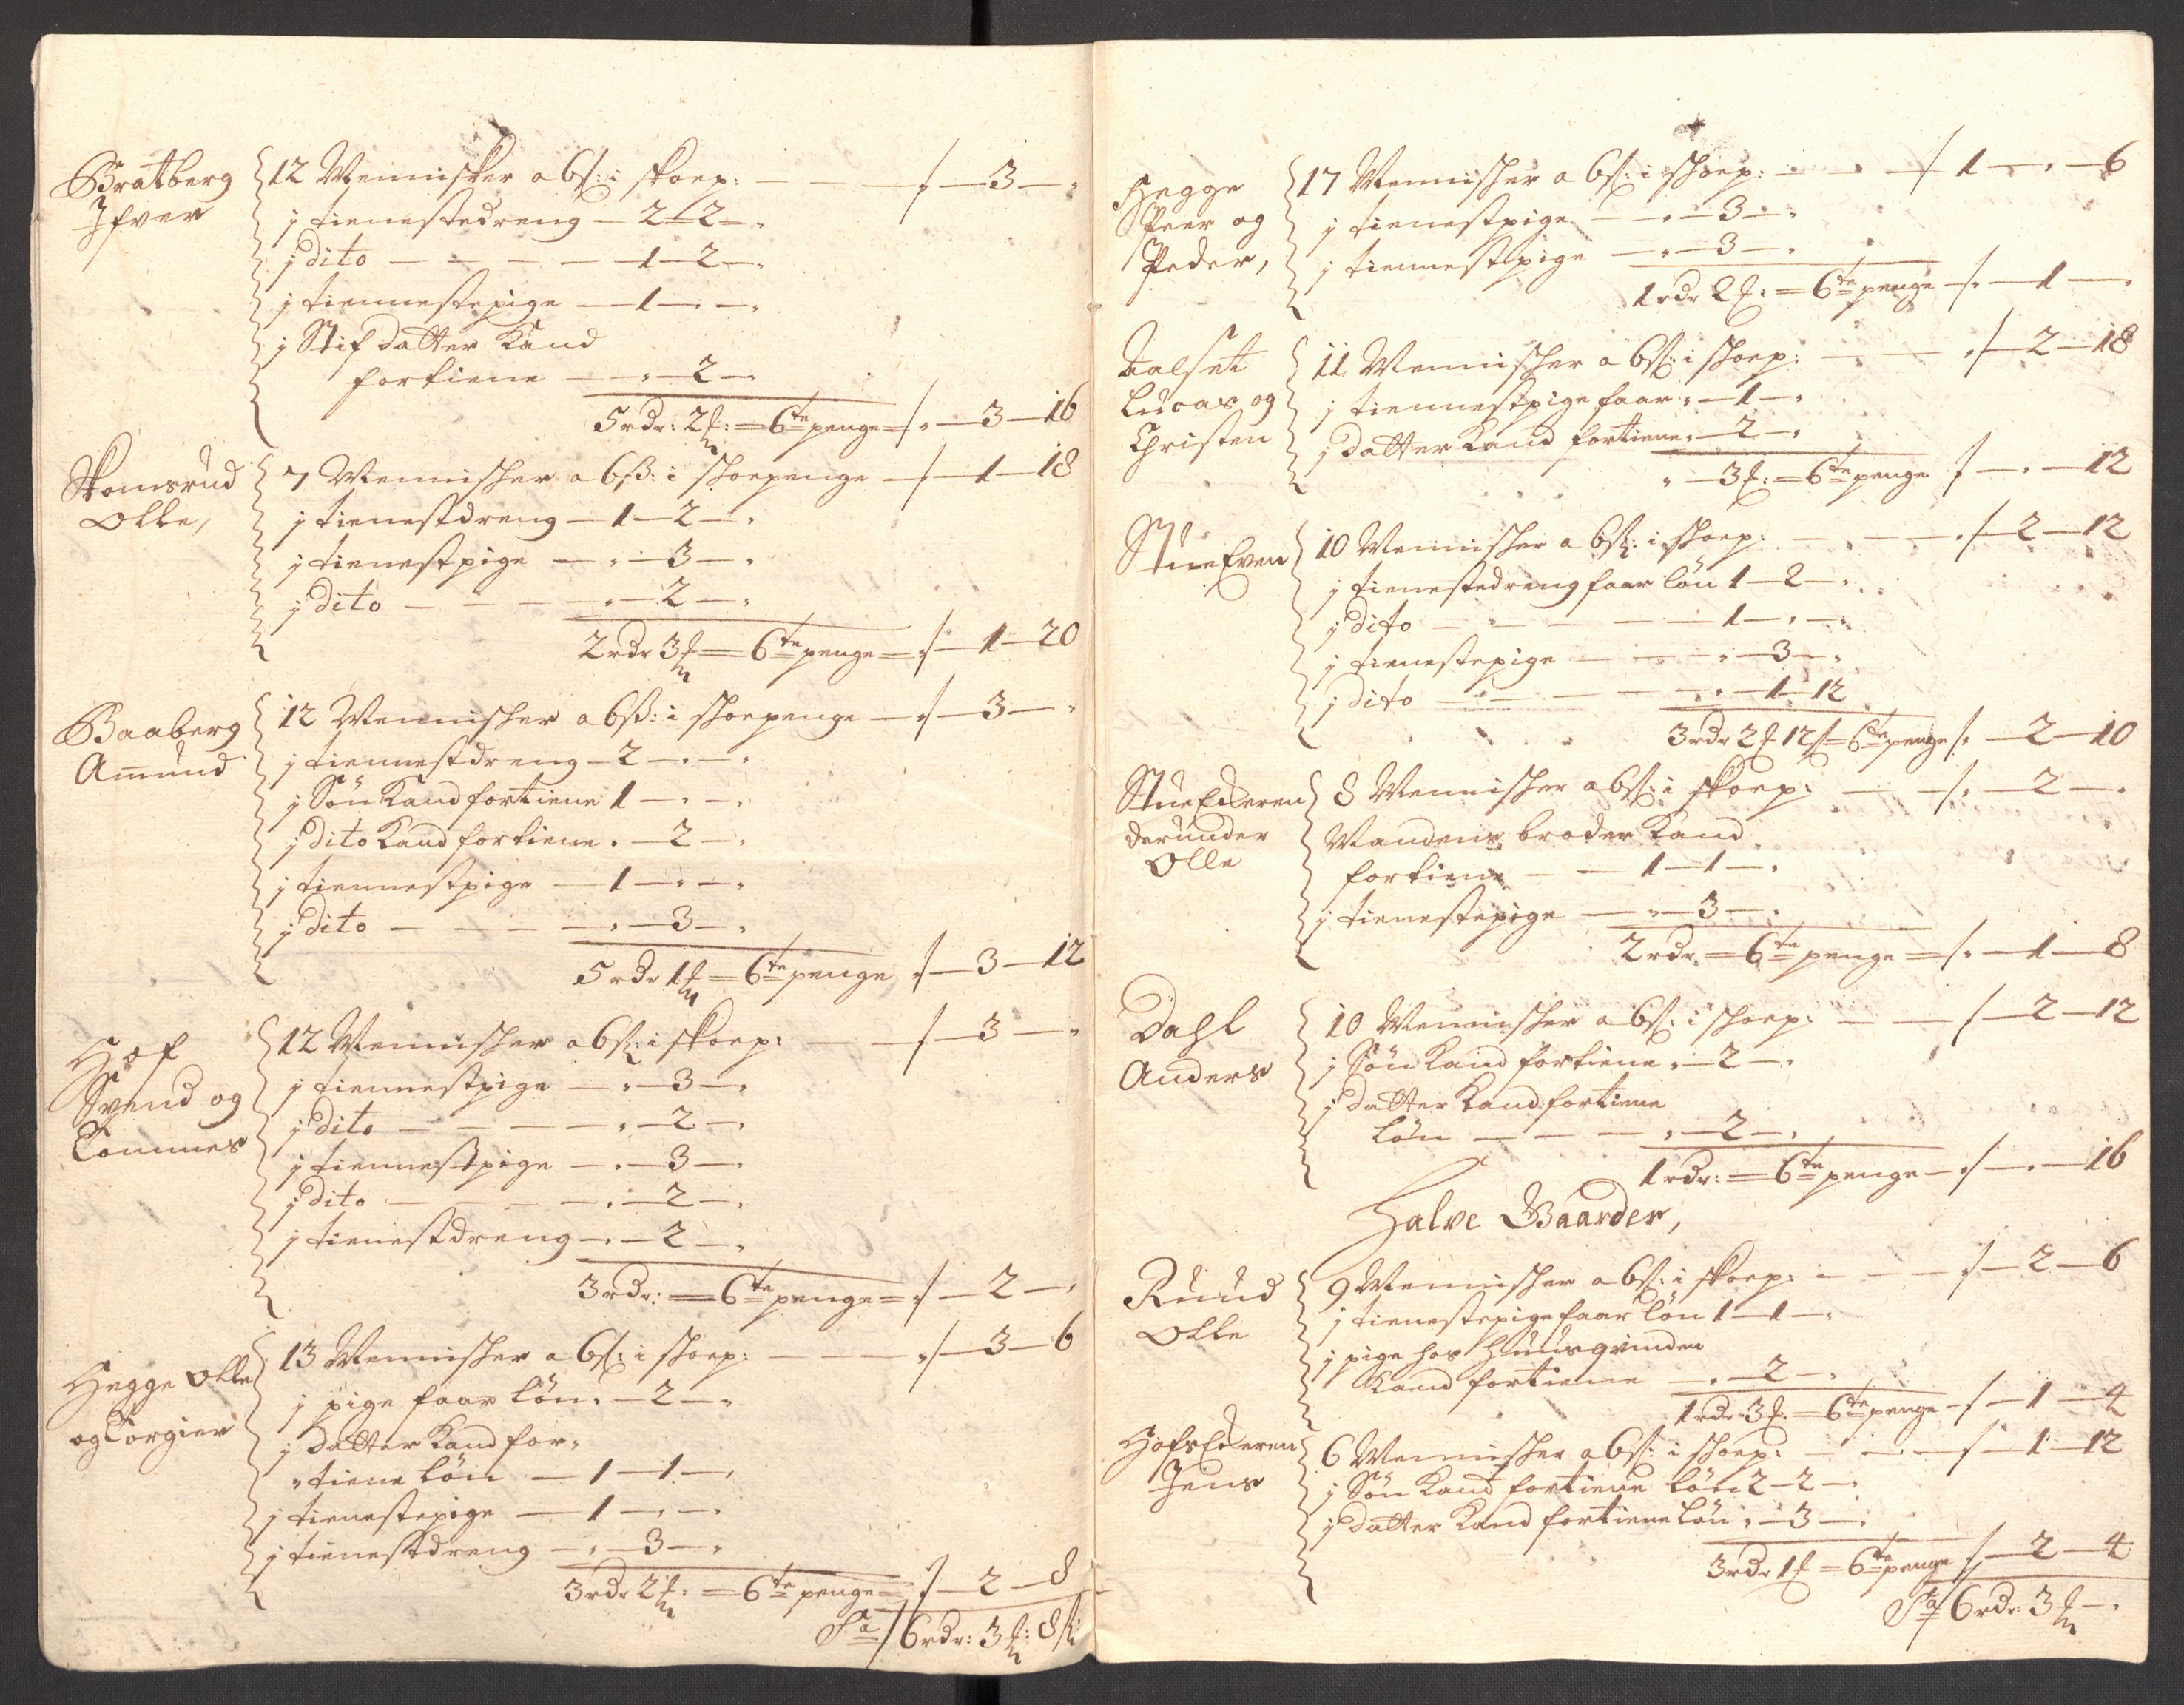 Bratberg
Ifver
12 Mennisker a 6s: i skoep: — / — 3 — „
j tienestedreng — 2 — 2 — „
j dito — 1 — 2 — „
j tiennestepige — 1 — „ — „
j Stif datter Kand
fortiene — „ — 2 — „
5 rdr: 2 f: = 6te penge = / „ — 3 — 16
Skomsrud
Olle,
7 Mennisker a 6ß: i skoepenge — / — 1 — 18
j tienestdreng — 1 — 2 — „
j tienestpige — „ — 3 — „
j dito — „ — 2 — „
2 rdr 3 f = 6te penge = / — 1 — 20
Baaberg
Amund
12 Mennisker a 6ß: i skoepenge — / — 3 — „
j tiennestdreng — 2 — „ — „
j Søn Kand fortiene 1 — „ — „
j dito Kand fortiene „ — 2 — „
j tiennestpige — 1 — „ — „
j dito — „ — 3 — „
5 rdr 1 f = 6te penge / — 3 — 12
Hof
Svend og
Tommes
12 Mennisker a 6s: i skoep: — / — 3 — „
j tiennestpige — „ — 3 — „
j dito — „ — 2 — „
j tiennestpige — „ — 3 — „
j dito — „ — 2 — „
j tienestdreng — „ — 2 — „
3 rdr: = 6te penge = / — 2 — „
Hegge Olle
og Torgier
13 Mennisker a 6s: i skoep: — / — 3 — 6
j pige faar løn „ — 2 — „
j datter Kand for„
„tiene løn — 1 — 1 — „
j tienestepige — 1 — „ — „
j tienestdreng — „ — 3 — „
3 rdr 2 f: = 6te penge = / — 2 — 8
Sa / 6 rdr: 3 f: 8 s:
Hegge
Peer og
Peder,
17 Mennisker a 6s: i skoep: — / 1 — „ — 6
j tienestpige — „ — 3 — „
j tiennestpige — „ — 3 — „
1 rdr 2 f: = 6te penge — / „ — 1 — „
Aalset
Lucas og
Christen
11 Mennisker a 6s: i skoep: — / — 2 — 18
j tiennestpige faar „ — 1 — „
j datter Kand fortiene „ — 2 — „
„ — 3 f: = 6te penge / — „ — 12
Stue Even
10 Mennisker a 6s: i skoep: — / — 2 — 12
j tienestedreng faar løn 1 — 2 — „
j dito — 1 — „ — „
j tienestepige — „ — 3 — „
j dito — „ — 1 — 12
3 rdr 2 f 12 s = 6te penge / „ — 2 — 10
Stue Ederen
derunder
Olle
8 Mennisker a 6s: i skoep: — / „ — 2 — „
Mandens broder Kand
fortiene — 1 — 1 — „
j tienestepige — „ — 3 — „
2 rdr = 6te penge = / „ — 1 — 8
Dahl
Anders
10 Mennisker a 6s: i skoep: — / — 2 — 12
j Søn Kand fortiene „ — 2 — „
j datter Kand fortiene
løn — „ — 2 — „
1 rdr: = 6te penge — / — „ — 16
Halve Gaarder,
Ruud
Olle
9 Mennisker a 6s: i skoep: — / — 2 — 6
j tienestepige faar løn 1 — 1 — „
j pige hos huusqvinden
Kand fortiene — „ — 2 — „
1 rdr 3 f: = 6te penge — / — 1 — 4
Hofs Ederen
Jens
6 Mennisker a 6s: i skoep: — / — 1 — 12
j Søn Kand fortiene løn 2 — 2 — „
j datter Kand fortiene løn „ — 3 — „
3 rdr 1 f = 6te penge / — 2 — 4
Sa / 6 rdr: 3 f — „